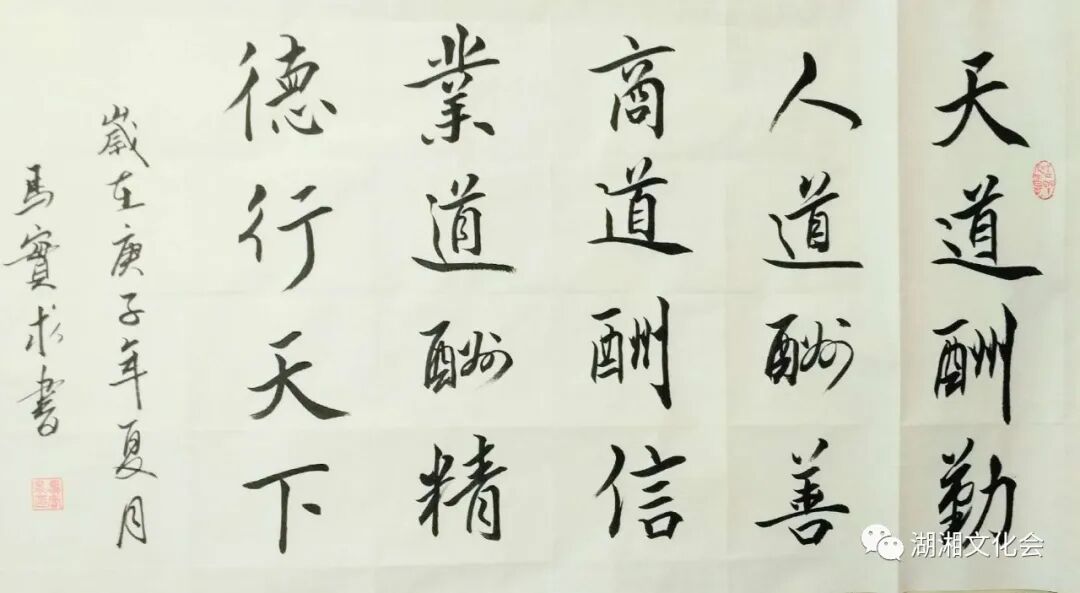 天道酬勤
人道酬善
商道酬信
業道酬精
德行天下
歲在庚子年夏月
馬實求書
湖湘文化会